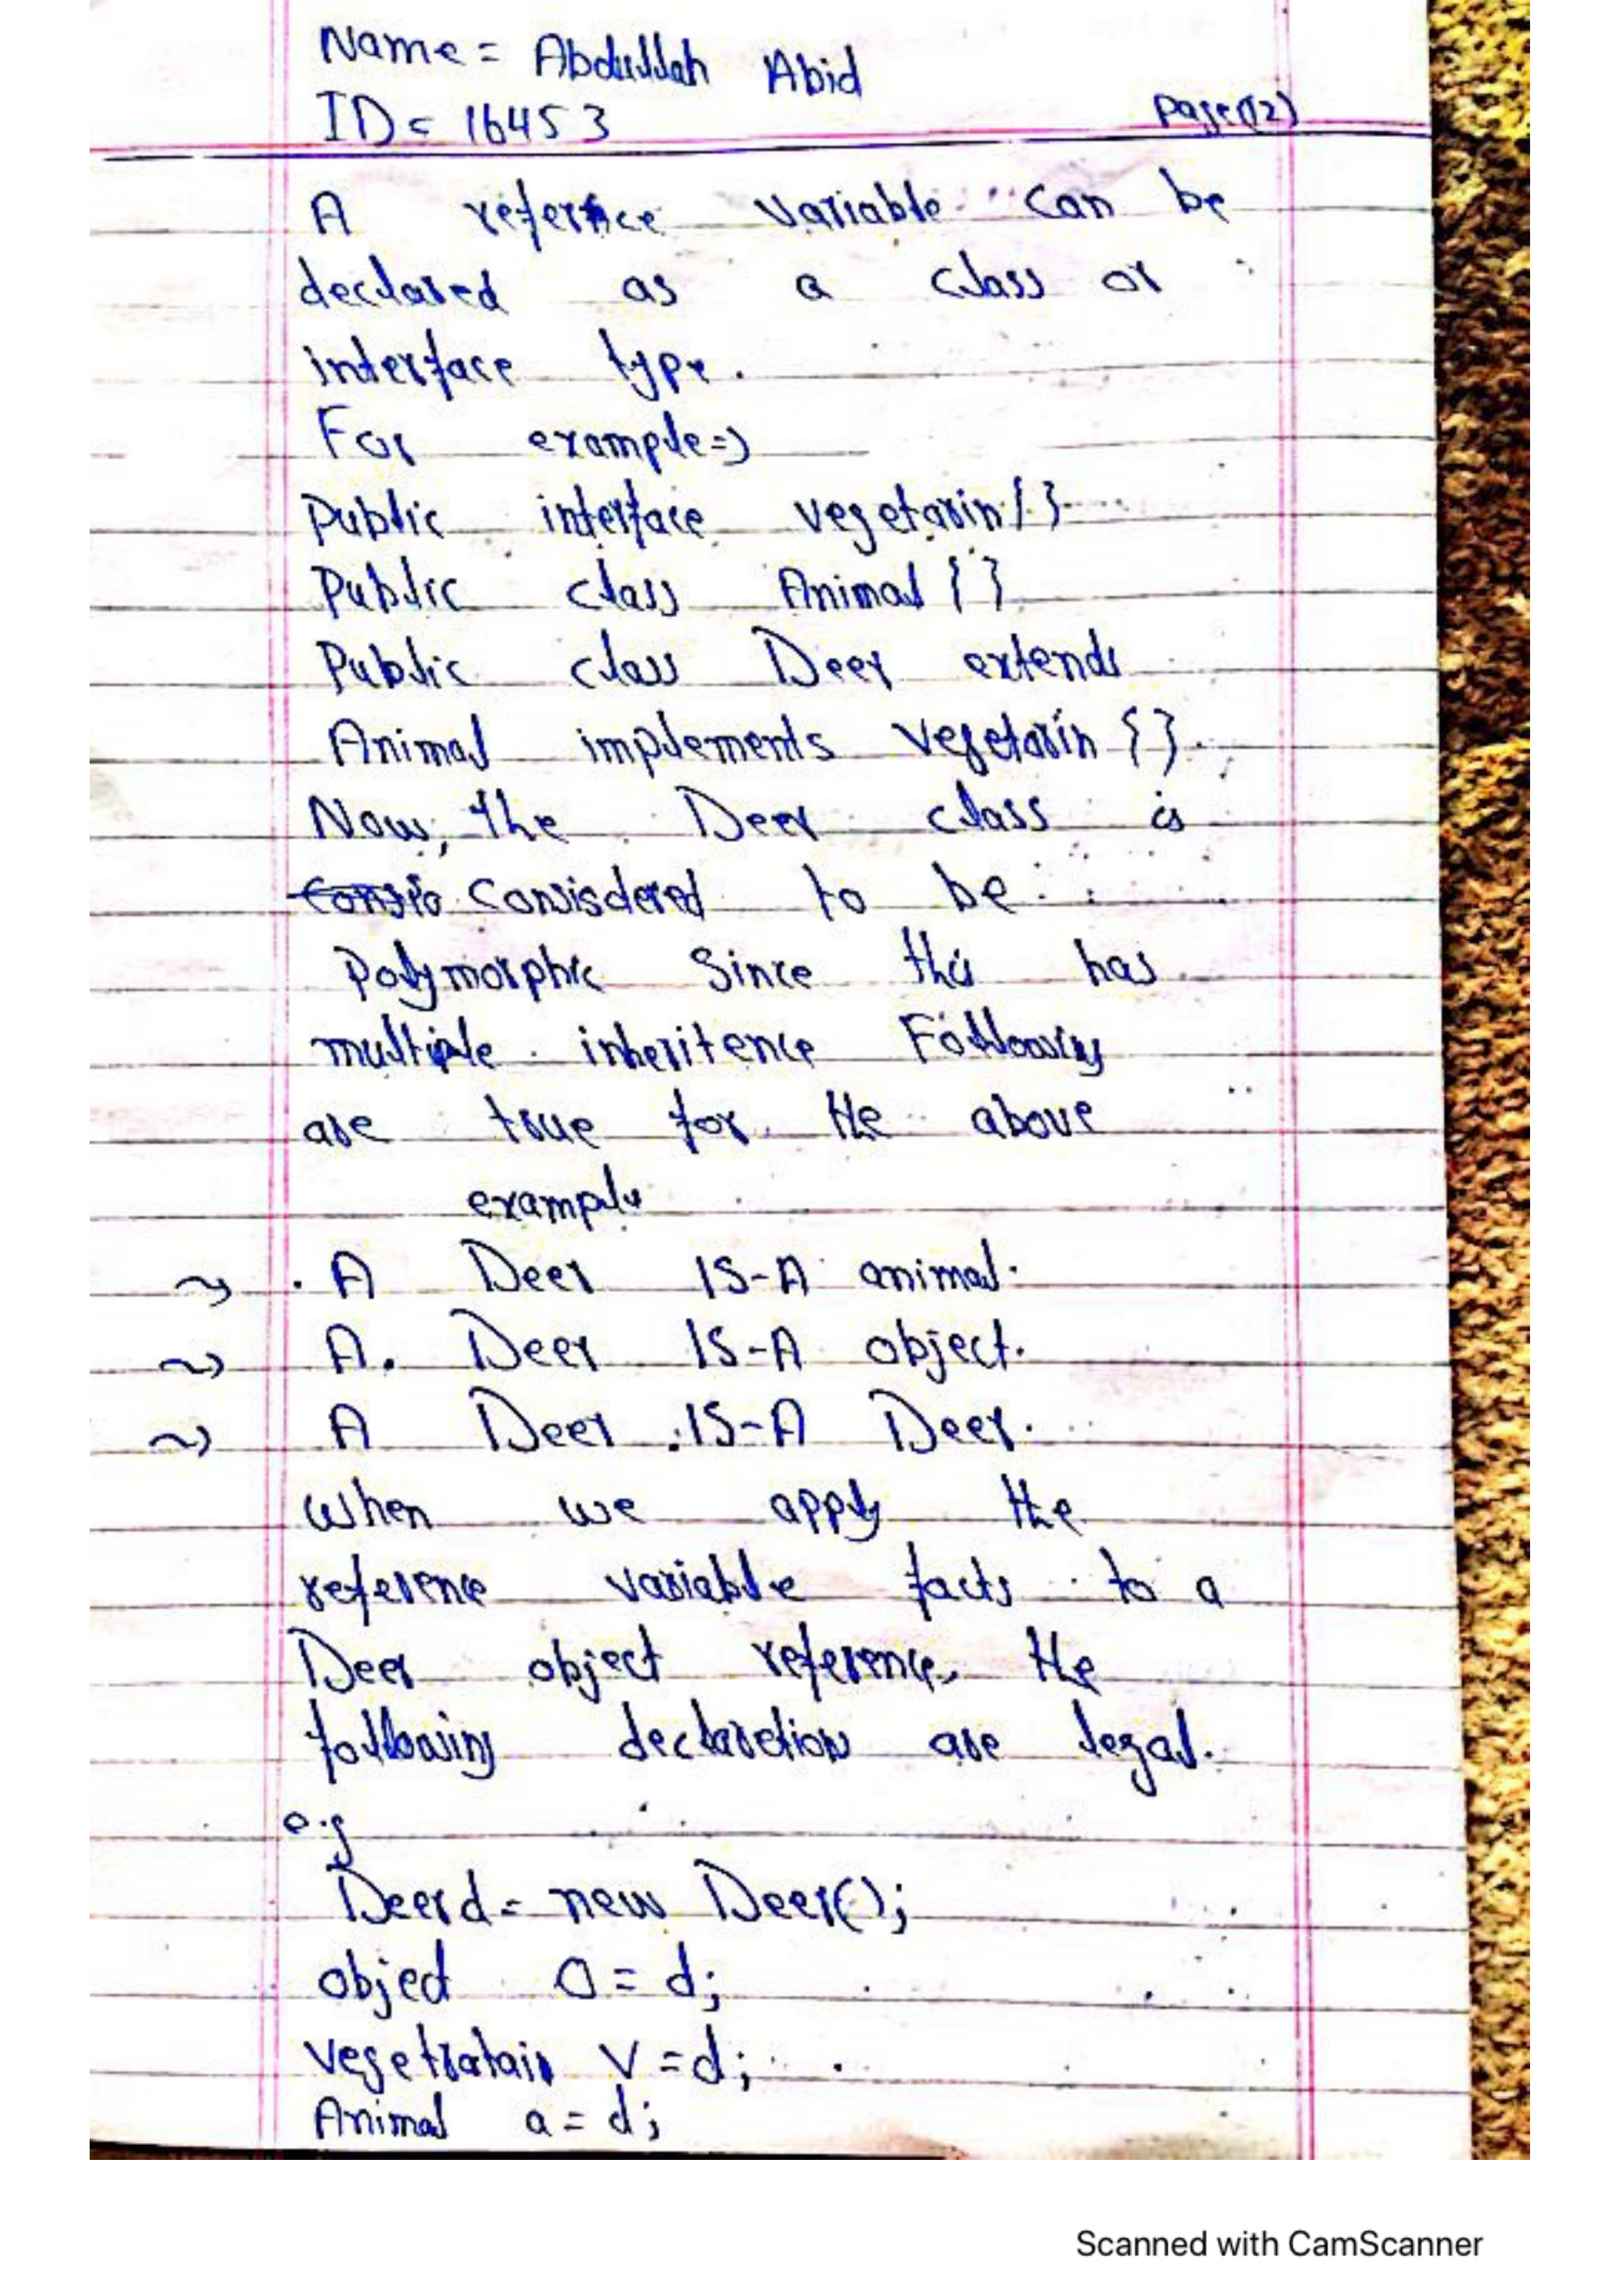 Name = Abdullah Abid
ID = 16453 Page(12)
A refernce variable can be
declared as a class or
interface type.
For example=>
Public interface vegetarin{}
Public class Animal {}
Public class Deer extends
Animal implements vegetarin {}.
Now, the Deer class is
Consio Consisdered to be
Polymorphic Since this has
multiple inheritence Following
are true for the above
example
~> . A Deer IS-A animal.
~> A. Deer IS-A object.
~> A Deer IS-A Deer.
When we apply the
reference variable facts to a
Deer object reference, the
following declaretion are legal.
e.g
Deer d = new Deer();
object O = d;
Vegetratain V = d;
Animal a = d;
Scanned with CamScanner